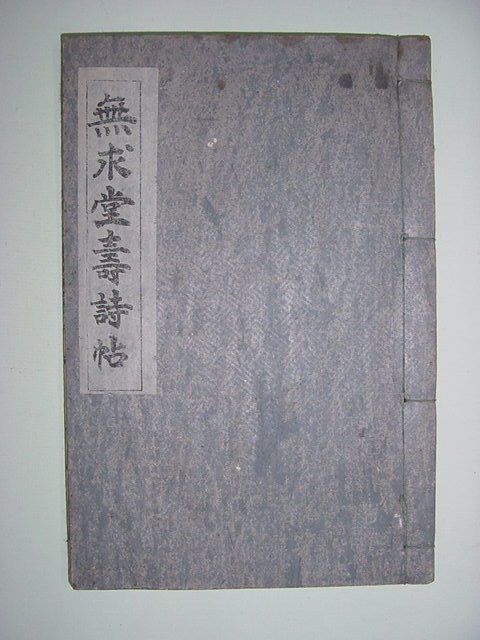 無求堂壽詩帖